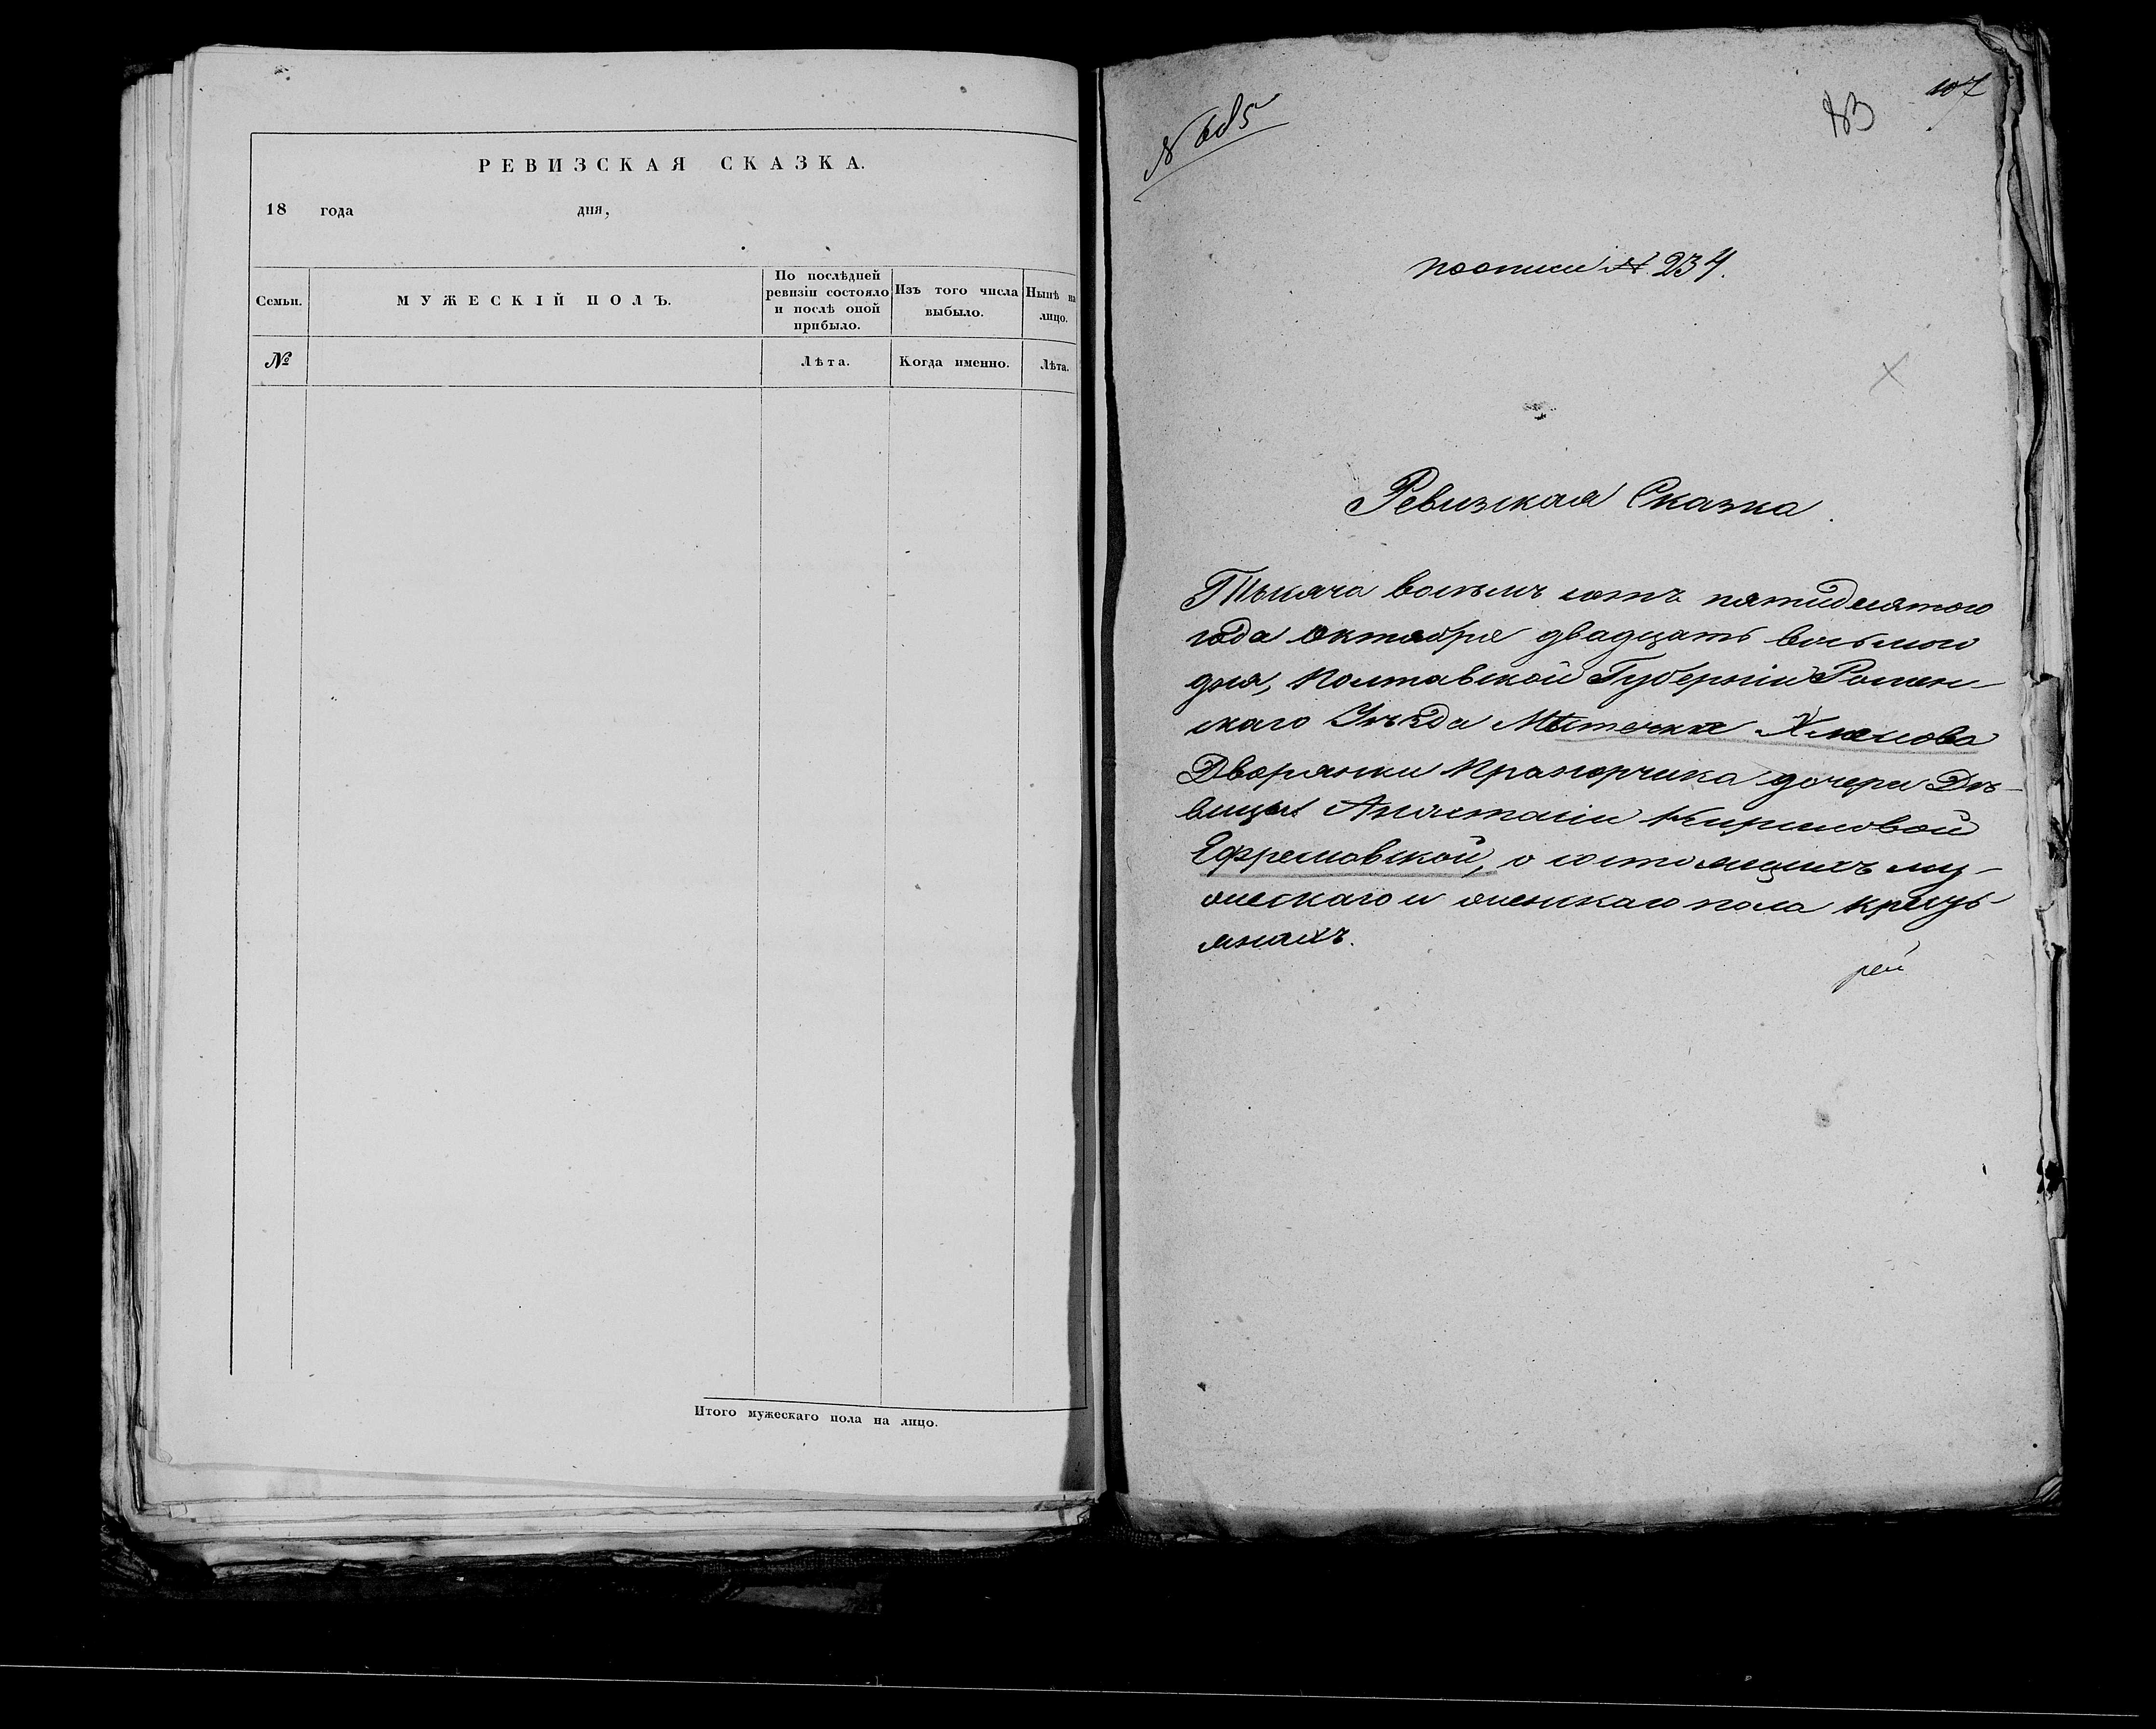 РЕВИЗСКАЯ СКАЗКА.
18 года дня,
Семьи.
МУЖЕСКІЙ ПОЛЪ.
По послѣдней
ревизіи состояло
и послѣ оной
прибыло.
Изъ того числа
выбыло.
Нынѣ на
лицо.
№
Лѣта.
Когда именно.
Лѣта.
Итого мужескаго пола на лицо.
107
83
по описи № 234.
Ревизская Сказка.
Тысяча восемь сотъ пятидесятого
года октября двадцать восьмого
дня, Полтавской Губерніи Ромен-
скаго Уѣзда Местечка Хмелова
Дворянки Прапорчика дочери Дѣ-
вицы Анастасіи Кириловой
Ефремовской, о состоящихъ му-
жескаго и женскаго пола кресть-
янахъ.